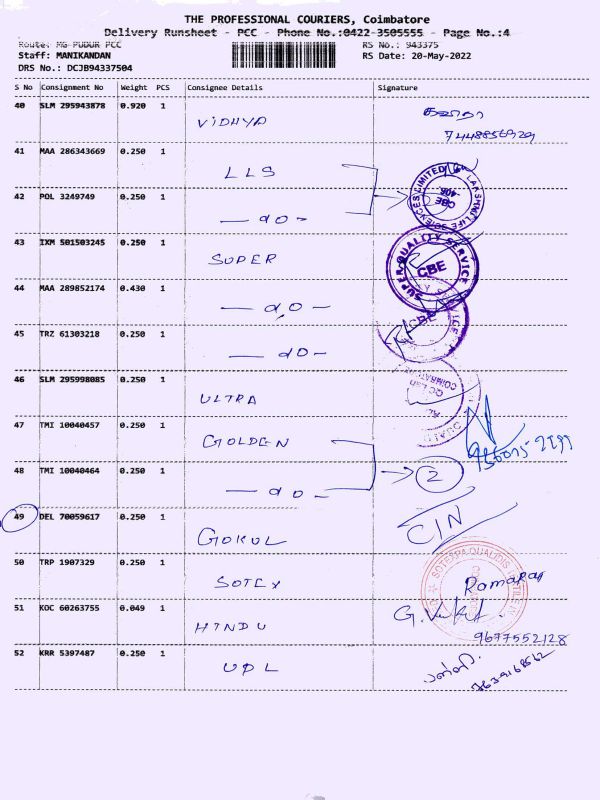 THE PROFESSIONAL COURIERS, Coimbatore
Delivery Runsheet - PCC - Phone No.:0422-3505555 - Page No.:4
Route: MG-PUDUR PCC RS No.: 943375
Staff: MANIKANDAN RS Date: 20-May-2022
DRS No.: DCJB94337504
S No Consignment No Weight PCS Consignee Details Signature
40 SLM 295943878 0.920 1 VIDHYA
41 MAA 286343669 0.250 1 LLS
42 POL 3249749 0.250 1 — do —
43 IXM 501503245 0.250 1 SUPER
SUPER QUALITY SERVICE CBE
44 MAA 289852174 0.430 1 — do —
45 TRZ 61303218 0.250 1 — do —
46 SLM 295998085 0.250 1 ULTRA
47 TMI 10040457 0.250 1 GOLDEN
48 TMI 10040464 0.250 1 — do — 2
49 DEL 70059617 0.250 1 GOKUL CIN
50 TRP 1907329 0.250 1 SOTEX
51 KOC 60263755 0.049 1 HINDU 9677552128
52 KRR 5397487 0.250 1 UPL